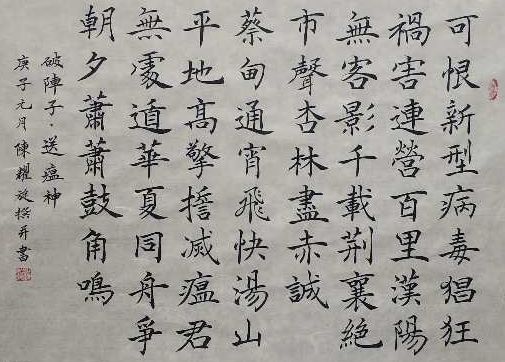 可恨新型病毒猖狂
禍害連營百里漢陽
無客影千載荆襄絶
市聲杏林盡赤誠
蔡甸通宵飛快湯山
平地高擎擔滅瘟君
無處遁華夏同舟爭
朝夕蕭蕭鼓角鳴
破陣子·送瘟神
庚子元月陳耀放撰并書